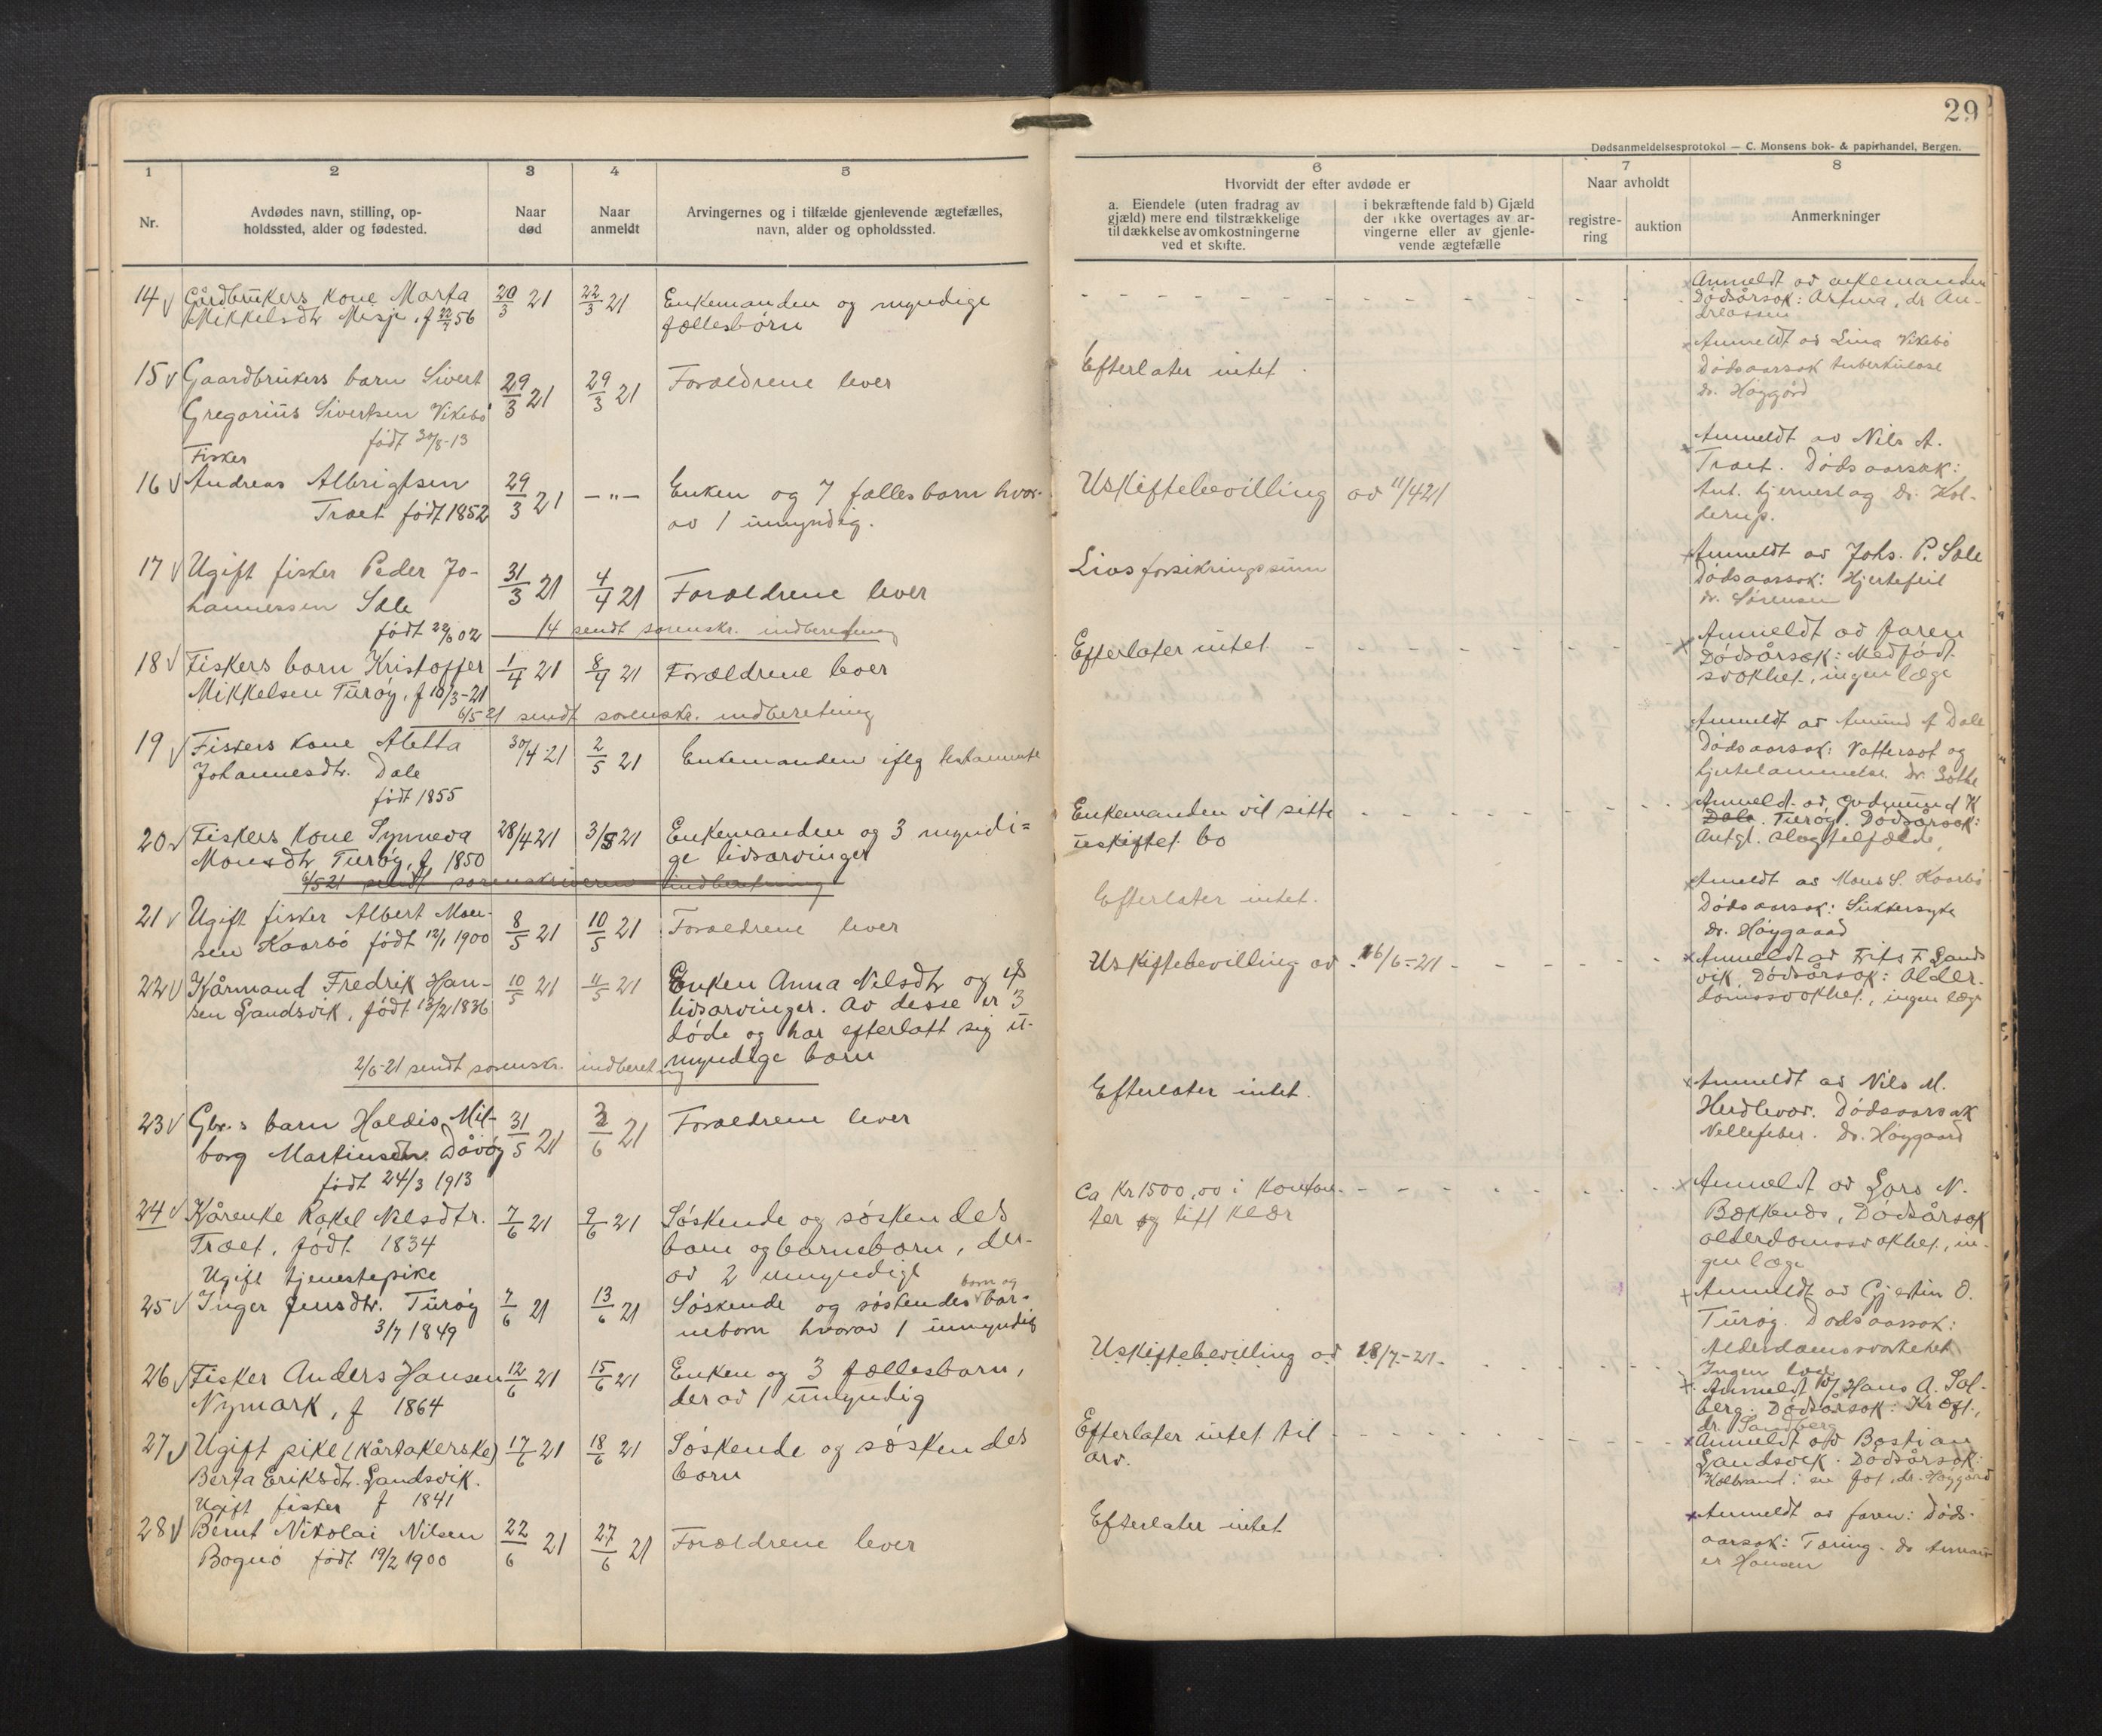 29
Dødsanmeldelsesprotokol — C. Monsens bok- & papirhandel, Bergen.
1
2
3
4
5
6
7
8
Nr.
Avdødes navn, stilling, op-
holdssted, alder og fødested.
Naar
død
Naar
anmeldt
Arvingernes og i tilfælde gjenlevende ægtefælles,
navn, alder og opholdssted.
Hvorvidt der efter avdøde er
a. Eiendele (uten fradrag av
gjæld) mere end tilstrækkelige
til dækkelse av omkostningerne
ved et skifte.
i bekræftende fald b) Gjæld
der ikke overtages av ar-
vingerne eller av gjenle-
vende ægtefælle
Naar avholdt
registre-
ring
auktion
Anmerkninger
14 Gårdbrukers kone Marta
Mikkelsdtr Misje, f 22/7 56
20/3 21
22/3 21
Enkemanden og myndige
fællesbörn
Anmeldt av enkemanden
Dødsårsak: Astma, dr An-
dreassen
15 Gaardbrukers barn Sivert
Gregorius Sivertsen Vikebö
född 30/8-13
29/3 21
29/3 21
Forældrene lever
Efterlater intet
Anmeldt av Lina Vikebö
Dødsaarsak tuberkulose
dr. Höygård
Fisker
16 Andreas Albrigtsen
Træt född 1852
29/3 21
— " —
Enken og 7 fællesbarn hvor-
av 1 umyndig.
Uskiftebevilling av 11/4 21
Anmeldt av Nils A.
Træt. Dødsaarsak:
Ant. hjerneslag Dr. Kol-
derup.
17 Ugift fisker Peder Jo-
hannessen Sæle
født 22/6 02
31/3 21
4/4 21
Forældrene lever
Livsforsikringssum
Anmeldt av Johs. P. Sæle
Dødsaarsak: Hjertefeil
dr. Sörensen
14 sendt sorenskr. indberetning
18 Fiskers barn Kristoffer
Mikkelsen Turöy, f 10/3-21
1/4 21
8/4 21
Forældrene lever
Efterlater intet
Anmeldt av faren
Dødsårsak: Medfødt
svakhet, ingen læge
6/5 21 sendt sorenskr. indberetning
19 Fiskers kone Aletta
Johannesdtr. Dale
født 1855
30/4-21
2/5 21
Enkemanden iflg testamente
Anmeldt av Amund A Dale
Dødsaarsak: Vattersot og
hjertelammelse. Dr.
20 Fiskers kone Synneva
Monsdtr Turöy, f. 1850
28/4 21
3/5 21
Enkemanden og 3 myndi-
ge livsarvinger
Enkemanden vil sitte
i uskiftet bo
Anmeld. av Gudmund K
Dale. Turöy. Dødsårsak:
Antgl. slagtilfælde,
6/5 21 sendt sorenskriveren indberetning
21 Ugift fisker Albert Mon-
sen Kaarbö født 12/1 1900
8/5 21
10/5 21
Forældrene lever
Efterlater intet.
Anmeldt av Mons S. Kaarbö
Dødsaarsak: Sukkersyke
Dr. Höygaard
22 Kårmand Fredrik Han-
sen Landsvik, født 13/2 1836
10/5 21
11/5 21
Enken Anna Nilsdtr og 8
livsarvinger. Av desse er 3
døde og har efterlatt sig u-
myndige barn
Uskiftebevilling av 16/6-21
Anmeldt av Frits F. Lands
vik. Dødsårsak: Alder-
domssvakhet, ingen læge
2/6-21 sendt sorenskr. indberetning
23 Gbr.s barn Haldis Mil-
borg Martinsdtr. Dåvöy
født 24/3 1913
31/5 21
2/6 21
Forældrene lever
Efterlater intet.
Anmeldt av Nils M.
Herdlevær. Dødsaarsak
Nellefeber. Dr. Höygaard
24 Kårenke Rakel Nilsdtr.
Træt, født 1834
7/6 21
9/6 21
Söskende og söskendes
barn og barnebarn, der-
av 2 umyndige
Ca Kr 1500,00 i kontan-
ter og litt klær
Anmeldt av Lars N.
Bakkanes, Dødsårsak
alderdomssvakhet, in-
gen læge
Ugift tjenestepike
25 Inger Jensdtr. Turöy
3/7 1849
7/6 21
13/6 21
barn og
Söskende og söskendes bar-
nebarn hvorav 1 umyndig
Anmeldt av Gjertin O.
Turöy. Dødsaarsak:
Alderdomssvakhet
Ingen læge
26 Fisker Anders Hansen
Nymark, f 1864
12/6 21
15/6 21
Enken og 3 fællesbarn,
derav 1 umyndig
Uskiftebevilling av 18/7-21.
Anmeldt av Hans A. Sol-
berg. Dødsårsak: Kræft,
dr. Sandberg
27 Ugift pike (kårtakerske)
Berta Eriksdtr. Landsvik.
f 1841
17/6 21
18/6 21
Söskende og söskendes
barn
Efterlater intet til
arv.
Anmeldt av Bastian
Landsvik. Dødsårsak:
Kolbrand i en fot, dr. Höygård
Ugift fisker
28 Bernt Nikolai Nilsen
Bognö født 19/2 1900
22/6 21
27/6 21
Forældrene lever
Efterlater intet
Anmeldt av faren: Døds-
aarsak: Tæring. dr
Hansen